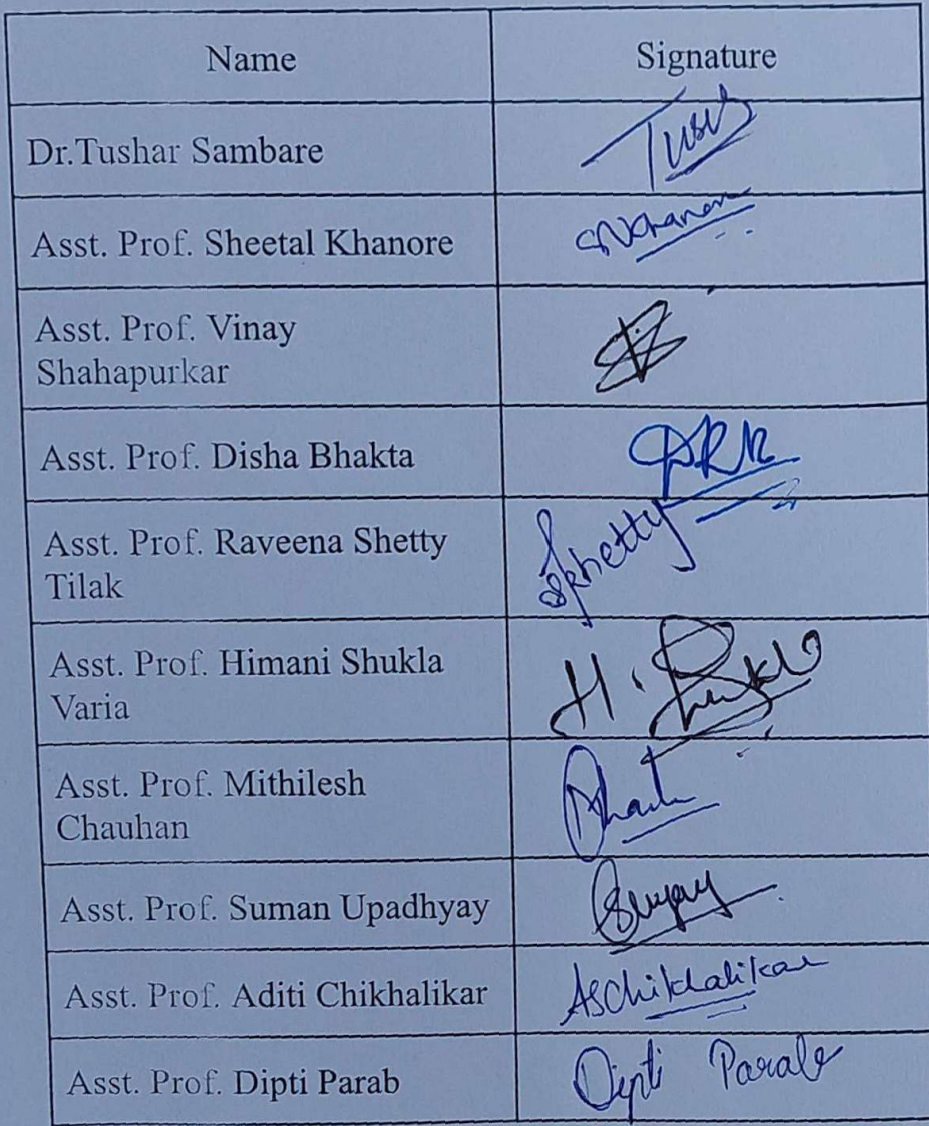 Name Signature
Dr.Tushar Sambare
Asst. Prof. Sheetal Khanore
Asst. Prof. Vinay
Shahapurkar
Asst. Prof. Disha Bhakta
Asst. Prof. Raveena Shetty
Tilak
Asst. Prof. Himani Shukla
Varia
H. Shukla
Asst. Prof. Mithilesh
Chauhan
Asst. Prof. Suman Upadhyay
Asst. Prof. Aditi Chikhalikar ASChikhalikar
Asst. Prof. Dipti Parab Dipti Parab